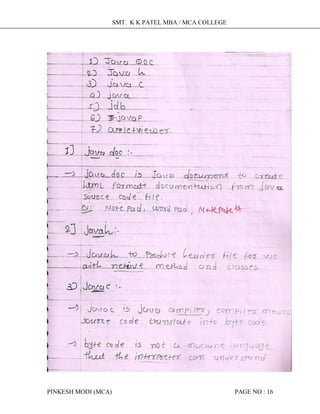 SMT. K K PATEL MBA / MCA COLLEGE
1) Java DOC
2) Java h
3) java c
4) java
5) jdb
6) javap
7) appletviewer.
1] java doc :-
→ java doc is Java document to create
html formate documentation from java
source code file.
Note Pad, word Pad, Notepad++
2] javah :-
→ javah to Produce header file for use
with native method and classes
3] Javac :-
→ javac is java compiler, compiler means
source code translate into byte code.
→ byte code is not a machine language
that the interpreter can understand
PINKESH MODI (MCA) PAGE NO : 16